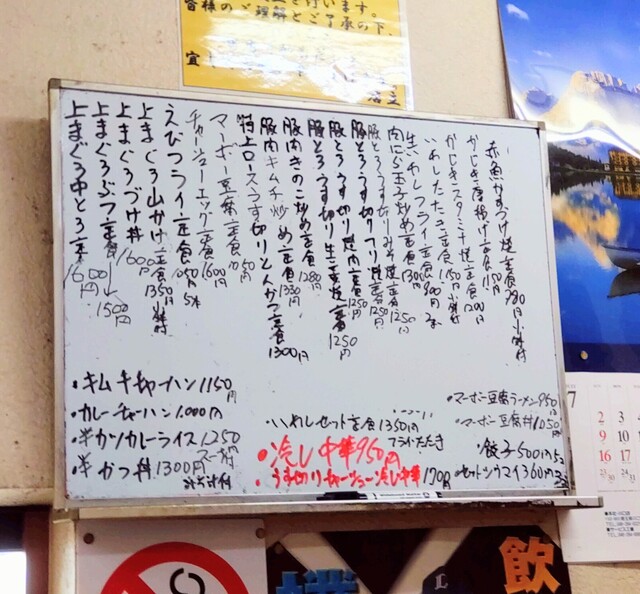 皆様のご理解とご了承の下、
赤魚かすづけ焼定食980円小鉢付
かじき唐揚げ定食1150円
かじきスタミナ焼定食1200円
いわしたたき定食1150円小鉢付
生いわしフライ定食900円2本
肉にら玉子炒め定食1130円
豚とろうす切りみそ焼定食1250円
豚とろうす切りてり焼定食1250円
豚とろうす切り焼肉定食1250円
豚とろうす切り生姜焼定食1250円
豚肉きのこ炒め定食1280円
豚肉キムチ炒め定食1330円
特上ロースうす切りとんかつ定食1300円
マーボー豆腐定食1050円
チャーシューエッグ定食1600円
えびフライ定食1050円5本
上まぐろ山かけ定食1350円小鉢付
上まぐろづけ丼1600円
上まぐろぶつ定食→1500円
上まぐろ中とろ定食1600円
・キムチチャーハン1150円
・カレーチャーハン1,000円
・半カツカレーライス1250円スープ付
・半かつ丼1300円
いわしセット定食1350円
フライ・たたき
・冷し中華950円
・うす切りチャーシュー冷し中華1170円
・マーボー豆腐ラーメン950円
・マーボー豆腐丼1050円
・餃子500円5ヶ
・セットシウマイ360円3ヶ
7
2 3
9 10
16 17
飲